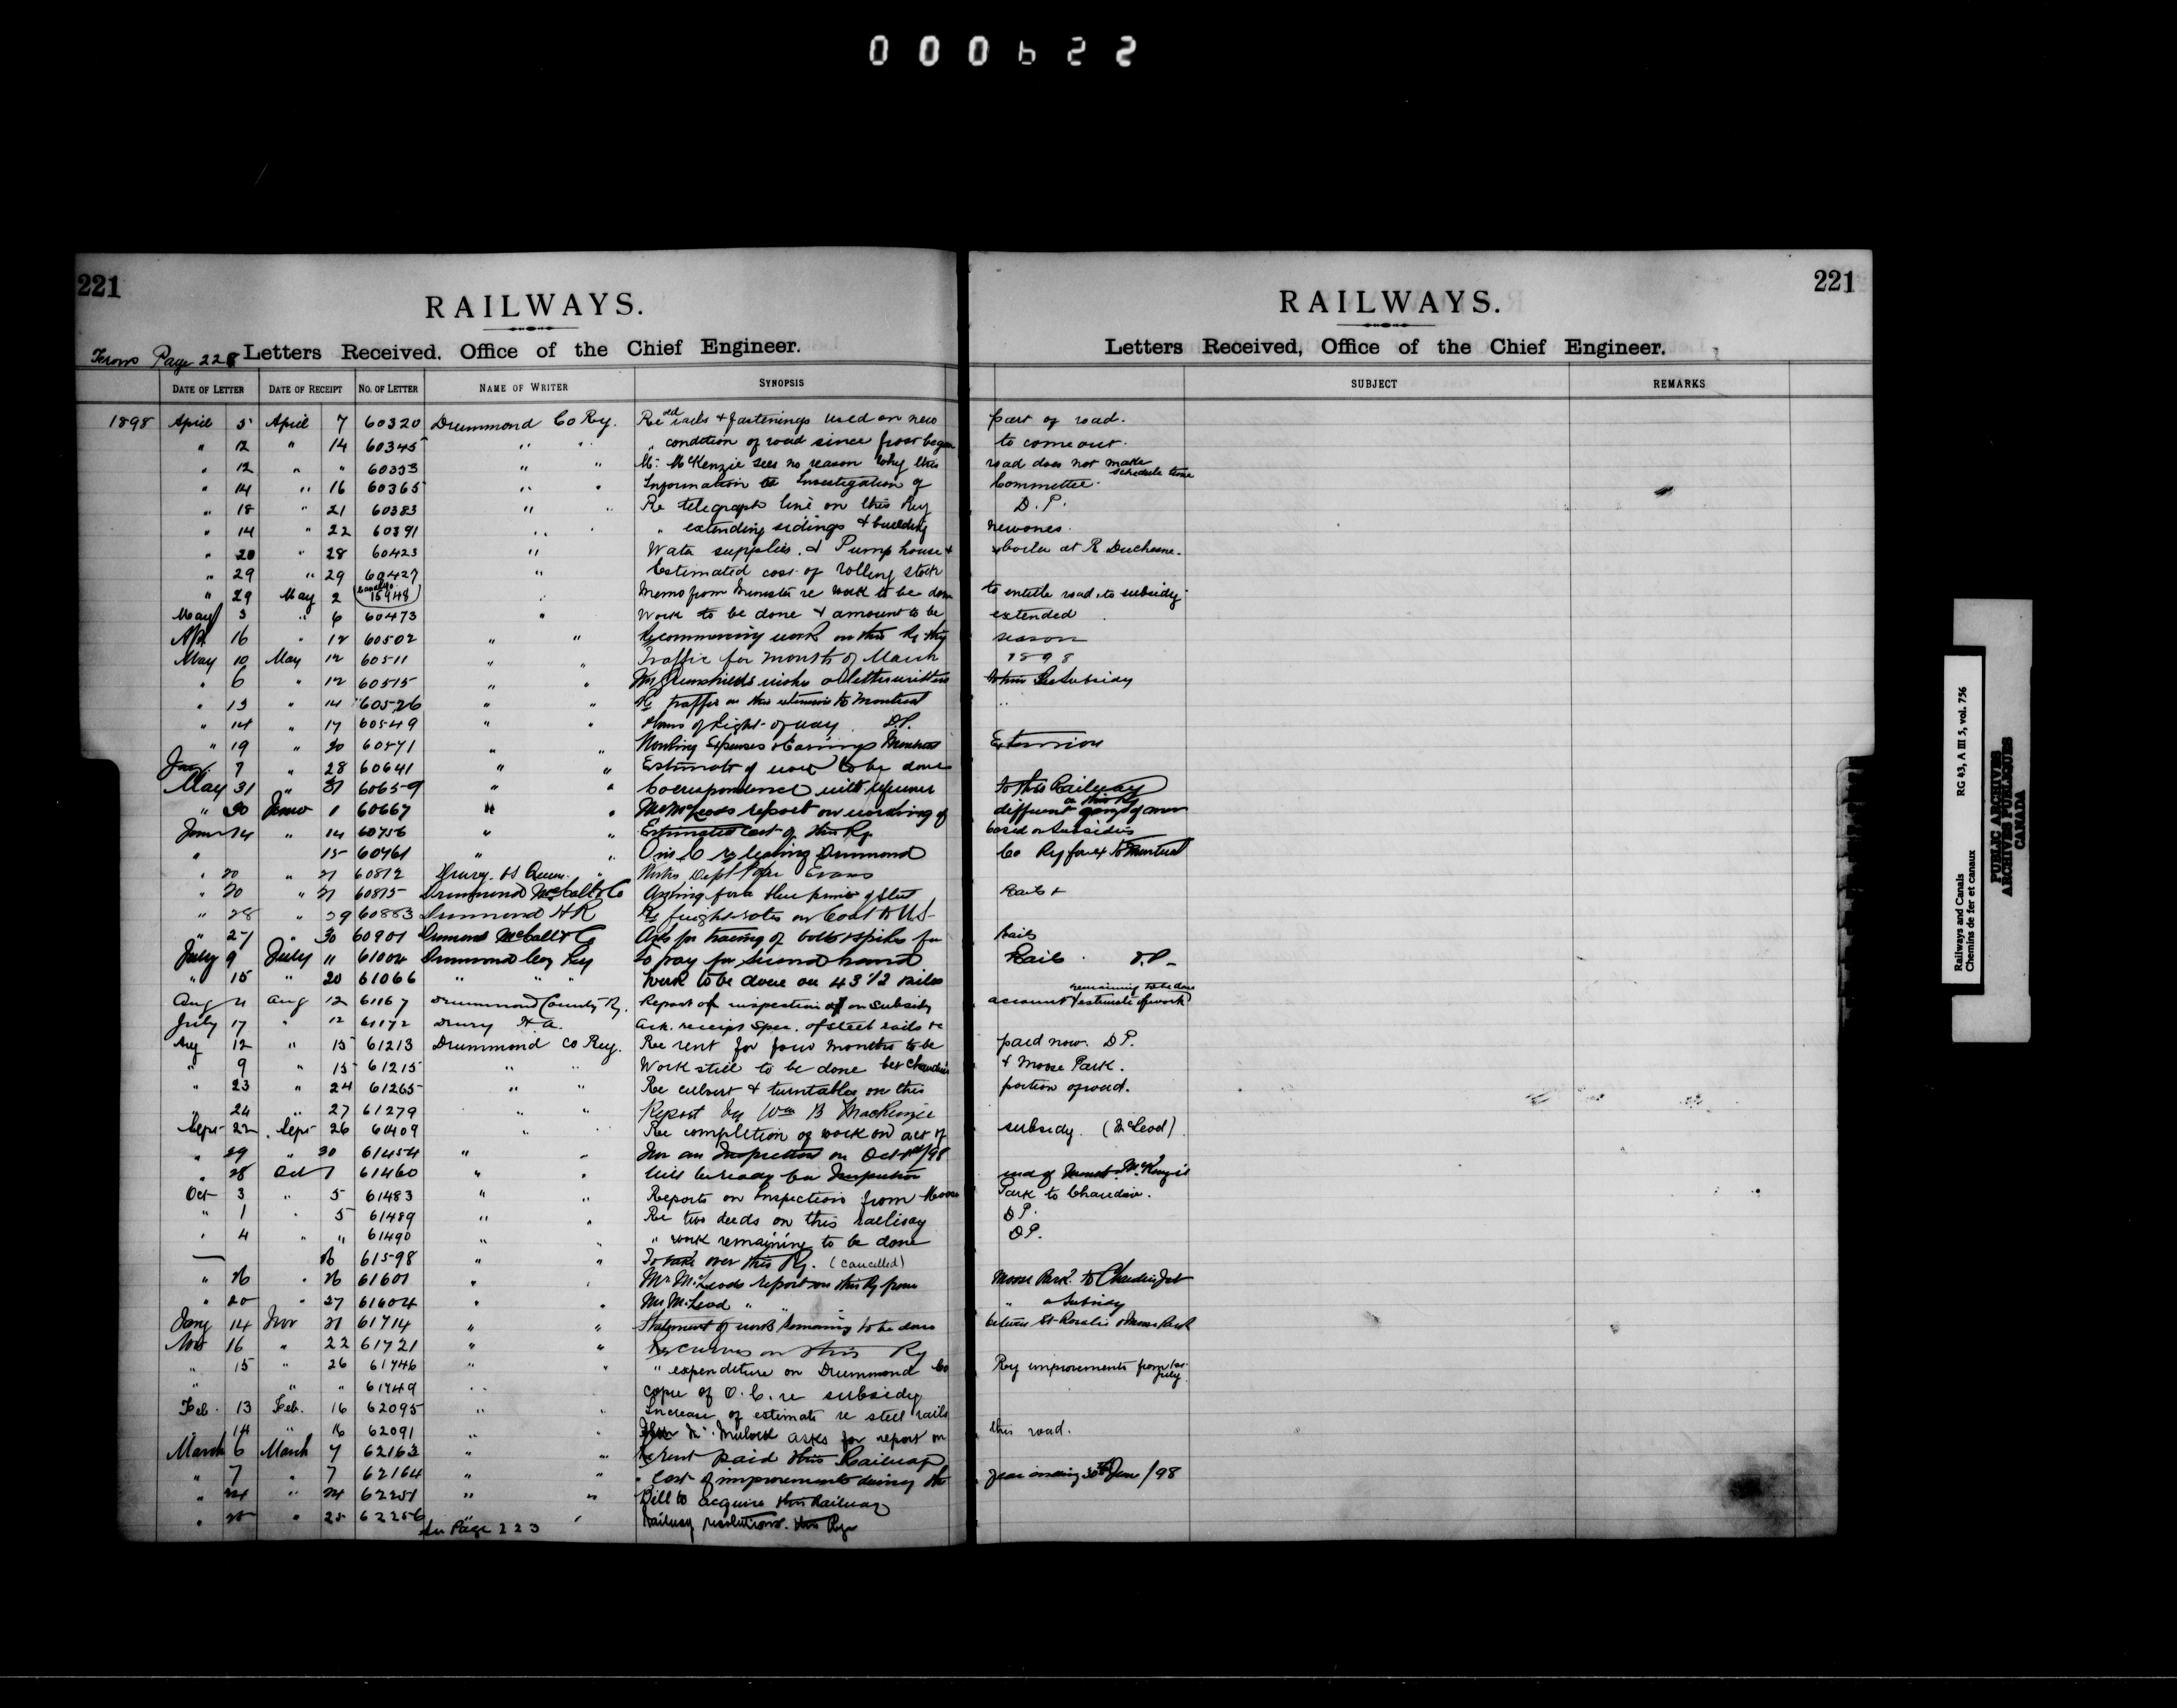 000622
221
RAILWAYS.
From Page 228 Letters Received, Office of the Chief Engineer.
DATE OF LETTER DATE OF RECEIPT NO. OF LETTER NAME OF WRITER SYNOPSIS
221
RAILWAYS.
Letters Received, Office of the Chief Engineer.
SUBJECT REMARKS
1898 April 5 April 7 60320 Drummond Co Ry. Re old rails & fastenings used on new part of road.
" 12 " 14 60345 " " " condition of road since frost began to come out.
" 12 " " 60353 " " Mr. McKenzie sees no reason why this road does not make schedule time
" 14 " 16 60365 " " Information re Investigation of Committee.
" 18 " 21 60383 " " Re telegraph line on this Ry D.P.
" 14 " 22 60391 " " " extending sidings & building new ones.
" 20 " 28 60423 " Water supplies, & Pump house & boiler at R Duchesne.
" 29 " 29 60427 " Estimated cost of rolling stock
" 29 May 2 (15948) " Memo from Minister re work to be done to entitle road to subsidy
May 3 " 6 60473 " Work to be done & amount to be extended
Apl 16 " 12 60502 " " Recommencing work on this Ry this season
May 10 May 12 60511 " " Traffic for month of March 1898
" 6 " 12 60515 " " Mr Greenshields wishes a letter written to him Re Subsidy
" 13 " 14 60526 " " Re traffic on this extension to Montreal "
" 14 " 17 60549 " " Plans of Right-of-way D.P.
" 19 " 20 60571 " " Working Expenses & Earnings Montreal Extension
Jan 7 " 28 60641 " " Estimate of work to be done
May 31 " 31 60659 " " Correspondence with reference to this Railway
" 30 June 1 60667 " " Mr McLeods report on working of different gangs of men on this Ry
June 14 " 14 60756 " " Estimated Cost of this Ry based on Subsidies
" 15 60761 " " O in C re leasing Drummond Co Ry for ext to Montreal
" 20 " 21 60812 Drury, H " Works Dept Evans
" 20 " 21 60815 Drummond McCall & Co Asking for blue prints of steel Rails &
" 28 " 29 60883 Drummond H R Re freight rates on Coal to U.S.
" 27 " 30 60901 Drummond McCall & Co Asks for tracing of bolts & spikes for rails
July 9 July 11 61002 Drummond Coy Ry To pay for second hand Rails. D.P.
" 15 " 20 61066 " " " Work to be done on 43 1/2 miles
Aug 11 Aug 12 61167 Drummond County Ry. Report of inspection of on Subsidy account & estimate of work remaining to be done
July 17 " 12 61172 Drury H A. Ack. receipt Spec. of steel rails &c
Aug 12 " 15 61213 Drummond Co Ry. Re rent for four months to be paid now. D P.
" 9 " 15 61215 " " Work still to be done bet Chaudiere & Moose Park.
" 23 " 24 61265 " " Re culvert & turntables on this portion of road.
" 24 " 27 61279 " " Report by Wm B MacKenzie
Sept 22 Sept 26 61409 " " Re completion of work on act of subsidy. (McLeod)
" 29 " 30 61454 " " For an Inspection on Oct 1st/98
" 28 Oct 1 61460 " " Will be ready for Inspection
Oct 3 " 5 61483 " " Reports on Inspection from Moose Park to Chaudiere.
" 1 " 5 61489 " " Re two deeds on this railway D P.
" 4 " " 61490 " " " work remaining to be done D P.
— 26 61598 " " To take over this Ry. (Cancelled)
" 26 " 26 61601 " " Mr McLeods report on this Ry from Moose Park to Chaudiere Jct
" 20 " 27 61604 " " Mr McLeod " " " " Subsidy
Jany 14 Nov 21 61714 " " Statement of work remaining to be done between St Rosalie & Moose Park
Nov 16 " 22 61721 " " Re Curves on this Ry
" 15 " 26 61746 " " " expenditure on Drummond Co Ry improvements from 1st July
" " " 61749 " " Copy of O.C. re subsidy
Feb. 13 Feb. 16 62095 " " Increase of estimate re steel rails
" 14 " 16 62091 " " Mulock asks for report on this road.
March 6 March 7 62163 " " Re rent paid this Railway
" 7 " 7 62164 " " " Cost of improvements during the year ending 30th June/98
" 24 " 24 62251 " " Bill to acquire this Railway
" 25 " 25 62256 " Railway resolutions. this Ry
See Page 223
Railways and Canals RG 43, A III 5, vol. 756
Chemins de fer et canaux
PUBLIC ARCHIVES
ARCHIVES PUBLIQUES
CANADA